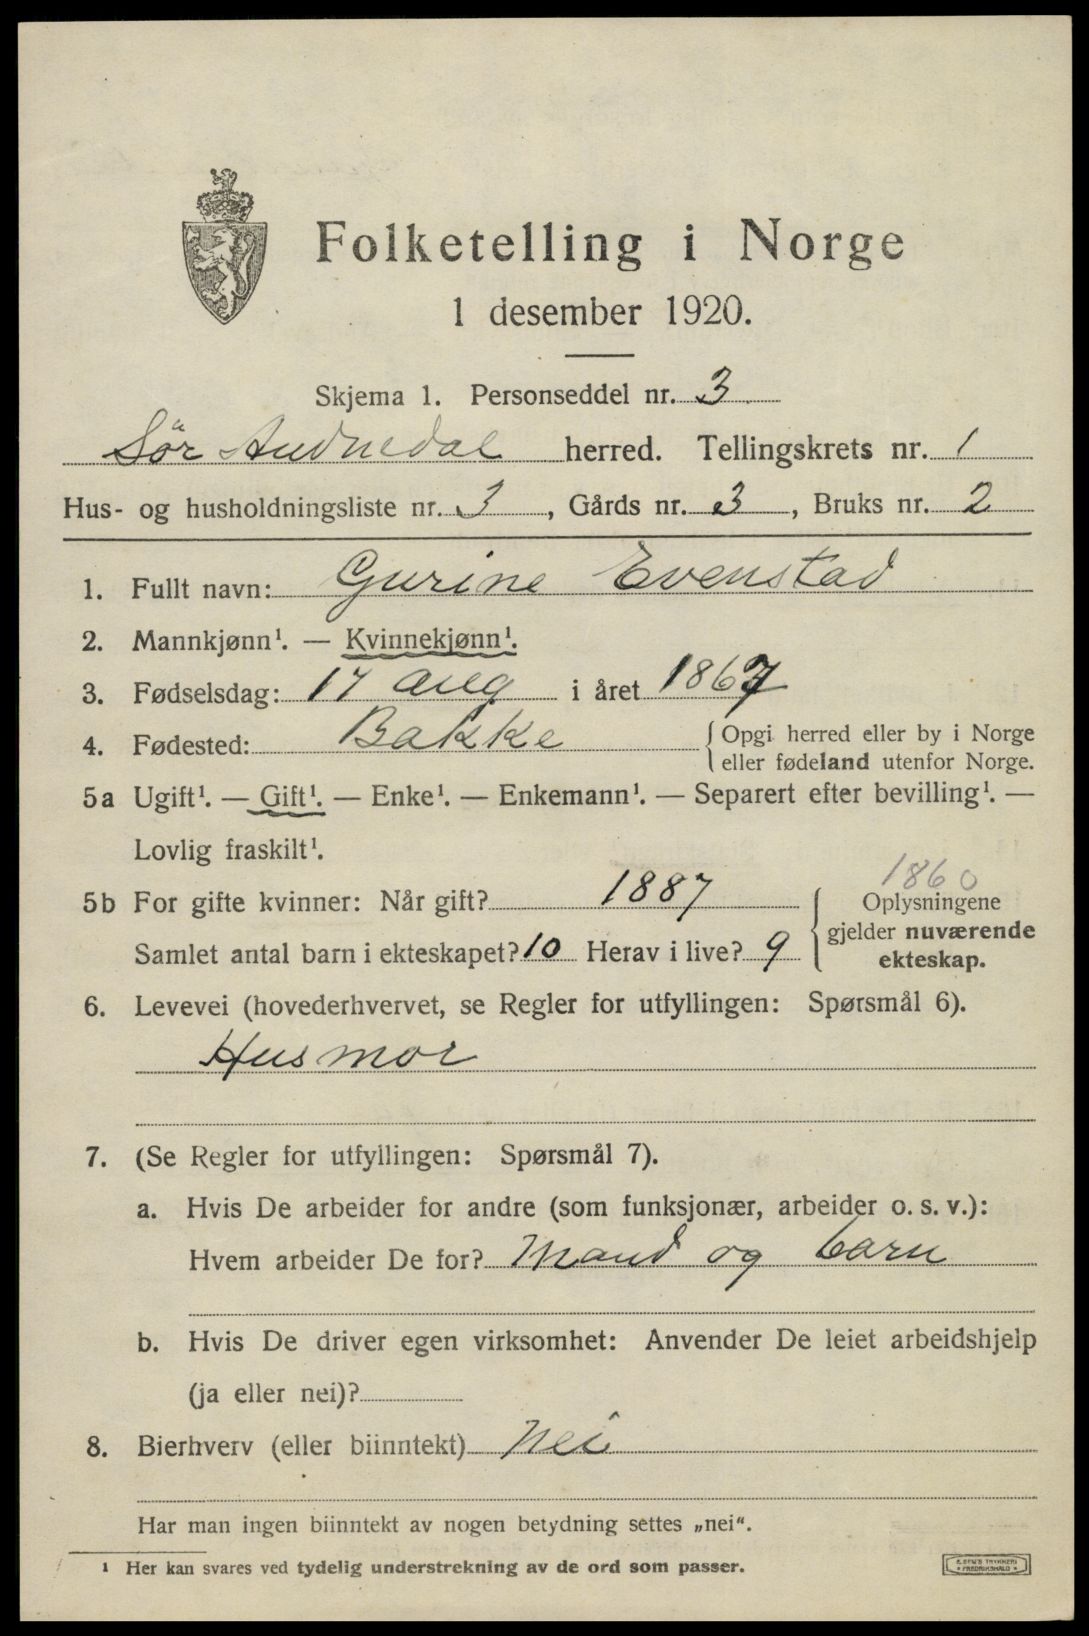 Folketelling i Norge
1 desember 1920.
Skjema 1. Personseddel nr. 3
Sör Audnedal herred. Tellingskrets nr. 1
Hus- og husholdningsliste nr. 3, Gårds nr. 3, Bruks nr. 2
1. Fullt navn: Gurine Evenstad
2. Mannkjønn¹. — Kvinnekjønn¹.
3. Fødselsdag: 17 aug i året 1867
4. Fødested: Bakke { Opgi herred eller by i Norge
eller fødeland utenfor Norge.
5a Ugift¹. — Gift¹. — Enke¹. — Enkemann¹. — Separert efter bevilling¹. —
Lovlig fraskilt¹.
1860
5b For gifte kvinner: Når gift? 1887 { Oplysningene
gjelder nuværende
Samlet antal barn i ekteskapet? 10 Herav i live? 9 ekteskap.
6. Levevei (hovederhvervet, se Regler for utfyllingen: Spørsmål 6).
Husmor
7. (Se Regler for utfyllingen: Spørsmål 7).
a. Hvis De arbeider for andre (som funksjonær, arbeider o. s. v.):
Hvem arbeider De for? Mand og barn
b. Hvis De driver egen virksomhet: Anvender De leiet arbeidshjelp
(ja eller nei)?
8. Bierhverv (eller biinntekt) Nei
Har man ingen biinntekt av nogen betydning settes „nei“.
¹ Her kan svares ved tydelig understrekning av de ord som passer.